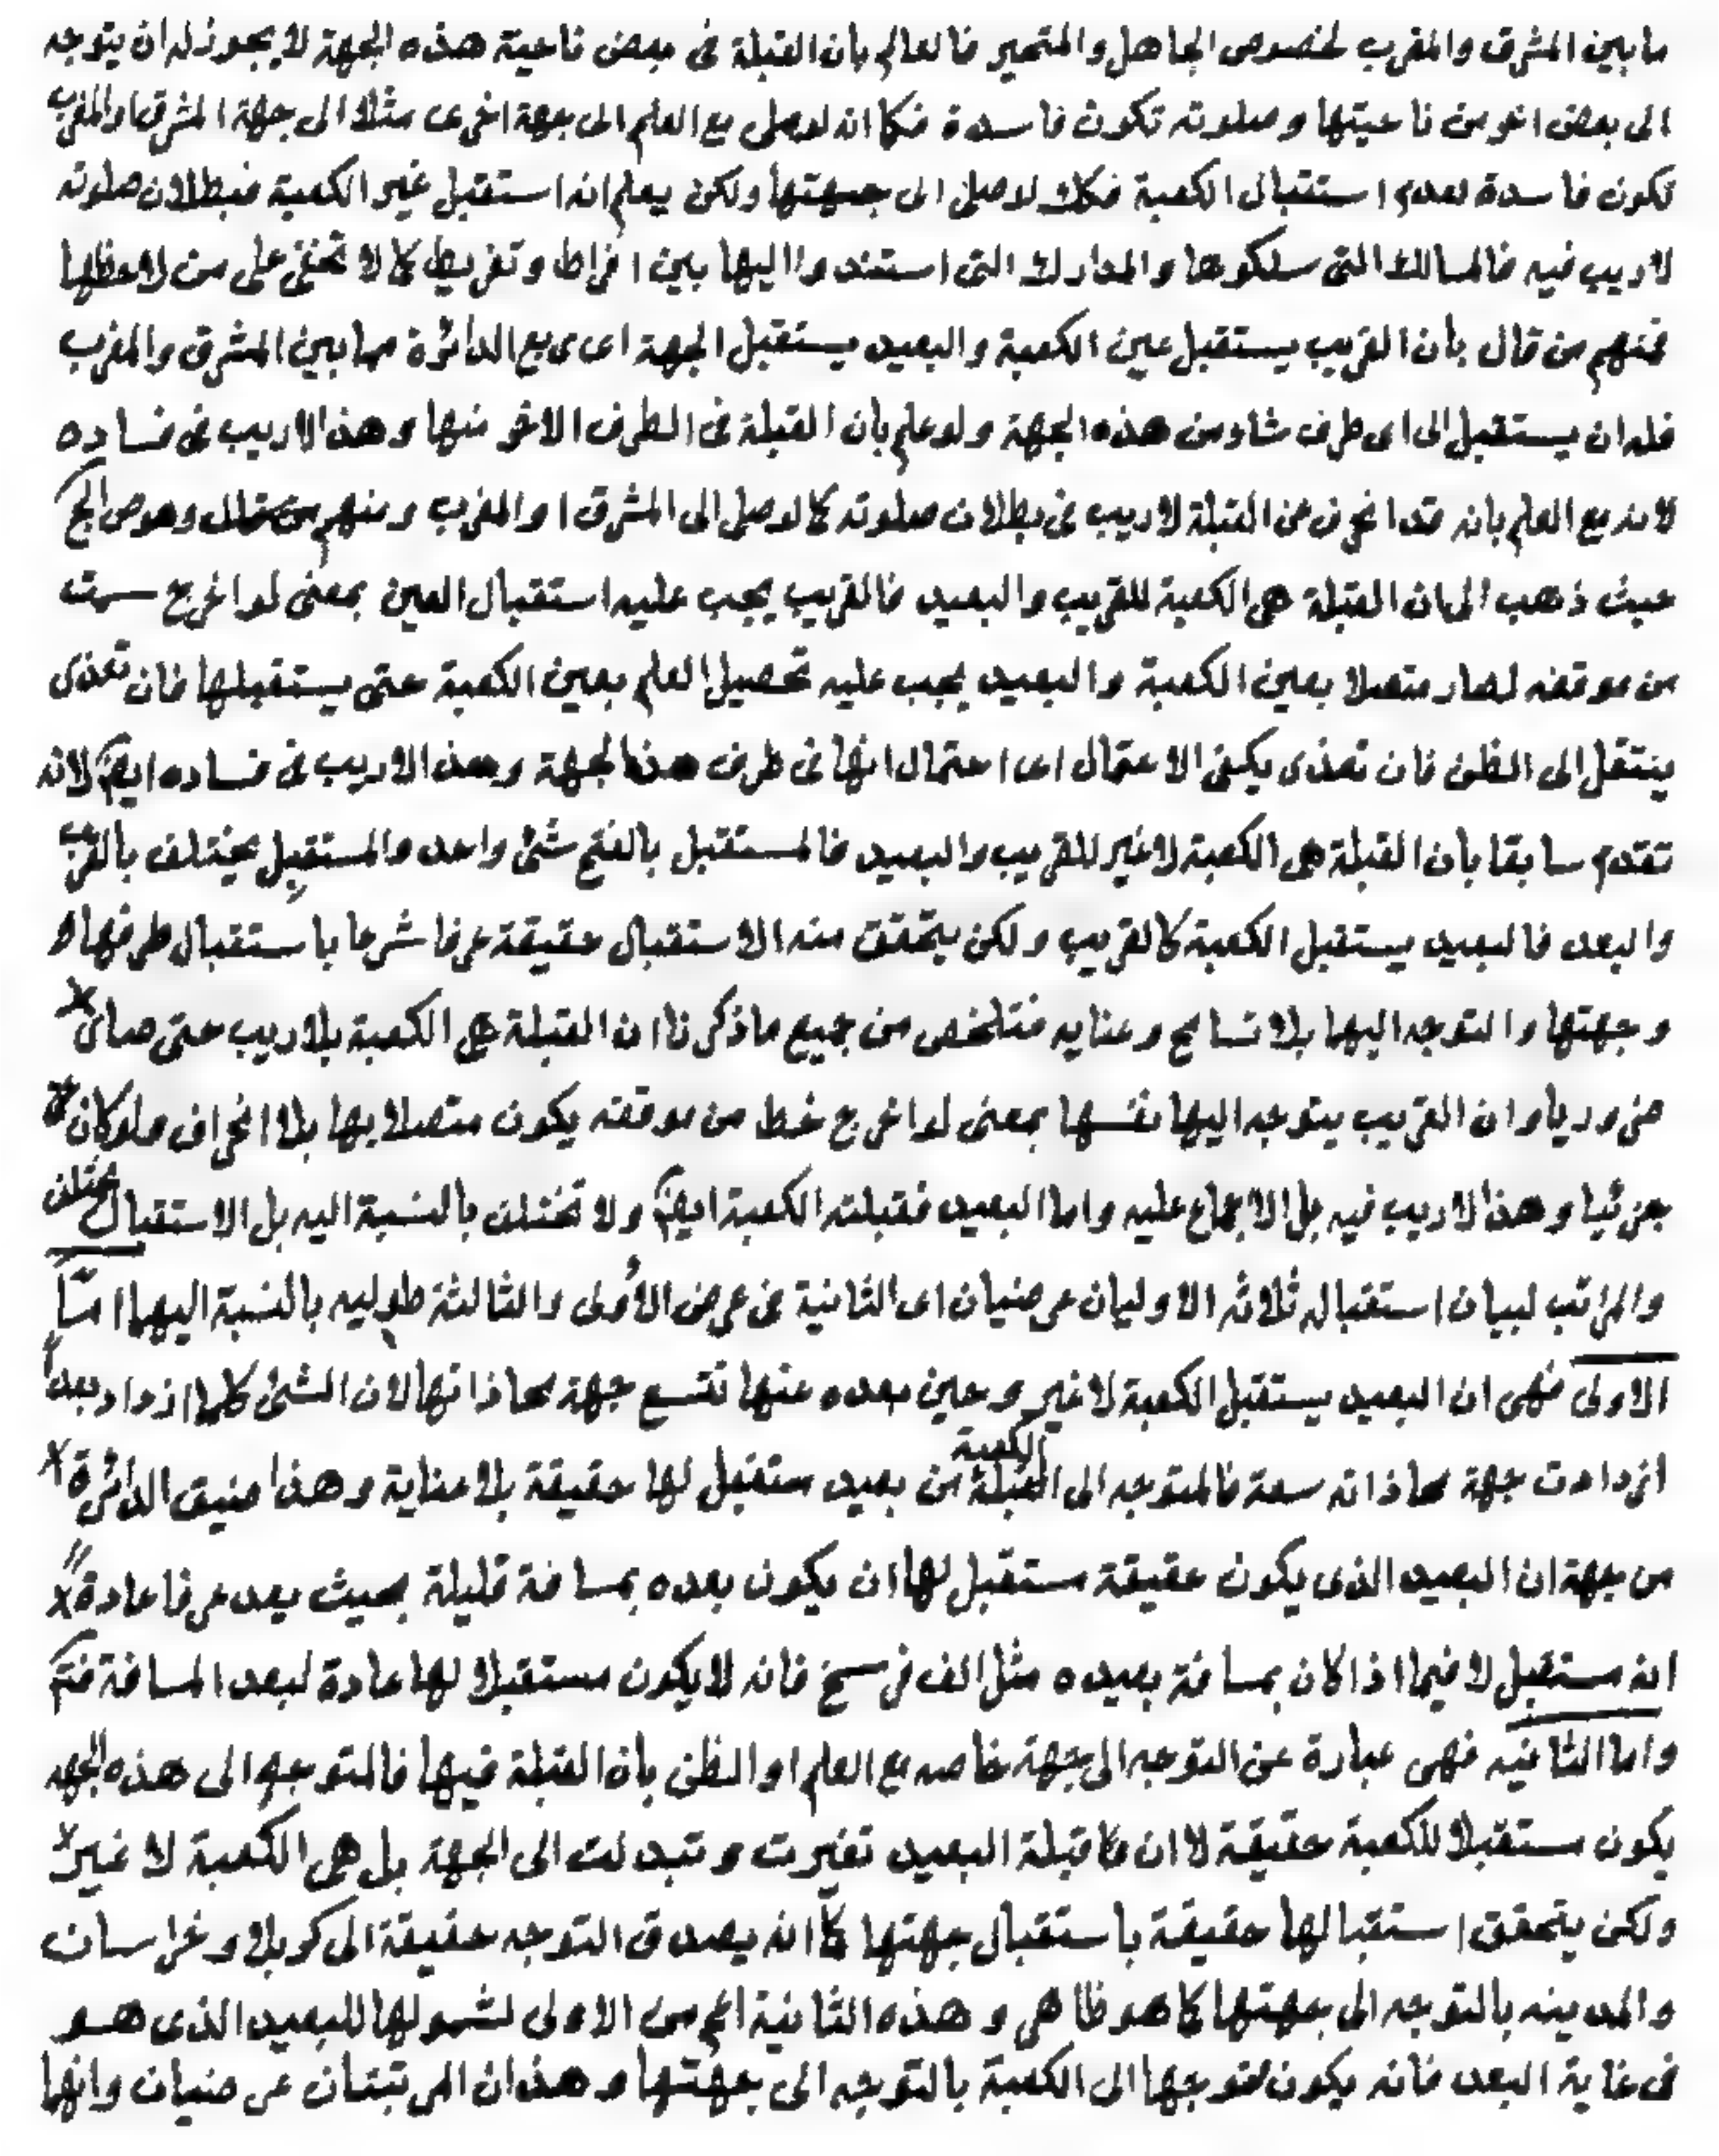 ما بين المشرق والمغرب لخصوص الجاهل والمتحير فالعالم بان القبلة فى بعض ناحية هذه الجهة لا يجوز له ان يتوجه
الى بعض اخر من ناحيتها وصلوته تكون فاسدة فكما انه لو صلى مع العلم الى جهة اخرى مثلا الى جهة المشرق او المغرب
تكون فاسدة لعدم استقبال الكعبة فكك لو صلى الى جهتها ولكن يعلم انه استقبل غير الكعبة فبطلان صلوته
لا ريب فيه فالمسالك التى سلكوها والمدارك التى استندوا اليها بين افراط وتفريط كما لا تخفى على من لاحظها
فمنهم من قال بان القريب يستقبل عين الكعبة والبعيد يستقبل الجهة اى ربع الدائرة مما بين المشرق والمغرب
فله ان يستقبل الى اى طرف شاء من هذه الجهة ولو علم بان القبلة فى الطرف الاخر منها وهذا لا ريب فى فساده
لانه مع العلم بانه قد انحرف عن القبلة لا ريب فى بطلان صلوته كما لو صلى الى المشرق او المغرب ومنهم من قال وهو ص الج
حيث ذهب الى ان القبلة هى الكعبة للقريب والبعيد فالقريب يجب عليه استقبال العين بمعنى لو اخرج سمت
من موقفه لصار متصلا بعين الكعبة والبعيد يجب عليه تحصيل العلم بعين الكعبة حتى يستقبلها فان تعذر
ينتقل الى الظن فان تعذر يكفى الاحتمال اى احتمال انها فى طرف هذا لجهة وهذا لا ريب فى فساده ايضا لانه
تقدم سابقا بان القبلة هى الكعبة لا غير للقريب والبعيد فالمستقبل بالفتح شئ واحد والمستقبِل يختلف بالقرب
والبعد فالبعيد يستقبل الكعبة كالقريب ولكن يتحقق منه الاستقبال حقيقة عرفا شرعا باستقبال طرفها
وجهتها والتوجه اليها بلا تسامح وعنايه فتلخص من جميع ما ذكرنا ان القبلة هى الكعبة بلا ريب حتى صار
ضروريا وان القريب يتوجه اليها نفسها بمعنى لو اخرج خط من موقفه يكون متصلا بها بلا انحراف ولو كان
جزئيا وهذا لا ريب فيه بل الاجماع عليه واما البعيد فقبلته الكعبة ايضا ولا تختلف بالنسبة اليه بل الاستقبال يختلف
والمراتب لبيان استقباله ثلاثه الاوليان عرضيان اى الثانية فى عرض الأولى والثالثة طوليه بالنسبة اليهما امّا
الاولى فهى ان البعيد يستقبل الكعبة لا غير وحين بعده عنها تتسع جهة محاذاتها لان الشئ كلما ازداد بعدا
ازدادت جهة محاذاته سعة فالمتوجه الى الكعبة من بعيد مستقبل لها حقيقة بلا عناية وهذا ضيق الدائرة
من جهة ان البعيد الذى يكون حقيقة مستقبل لها ان يكون بعده بمسافة قليلة بحيث يعد عرفا عادة
انه مستقبل لا فيما اذا كان بمسافة بعيده مثل الف فرسخ فانه لا يكون مستقبلا لها عادة لبعد المسافة فتم
واما الثانيه فهى عبارة عن التوجه الى جهة خاصه مع العلم او الظن بان القبلة فيها فالمتوجه الى هذه الجهه
يكون مستقبلا للكعبة حقيقة لا ان قبلة البعيد تغيرت وتبدلت الى الجهة بل هى الكعبة لا غير
ولكن يتحقق استقبالها حقيقة باستقبال جهتها كما انه يصدق التوجه حقيقة الى كربلا وخراسان
والمدينه بالتوجه الى جهتها كما هو ظاهر وهذه الثانية اعم من الاولى لشمولها للبعيد الذى هو
فى غاية البعد فانه يكون متوجها الى الكعبة بالتوجه الى جهتها وهذان المرتبتان عرضيان وانها